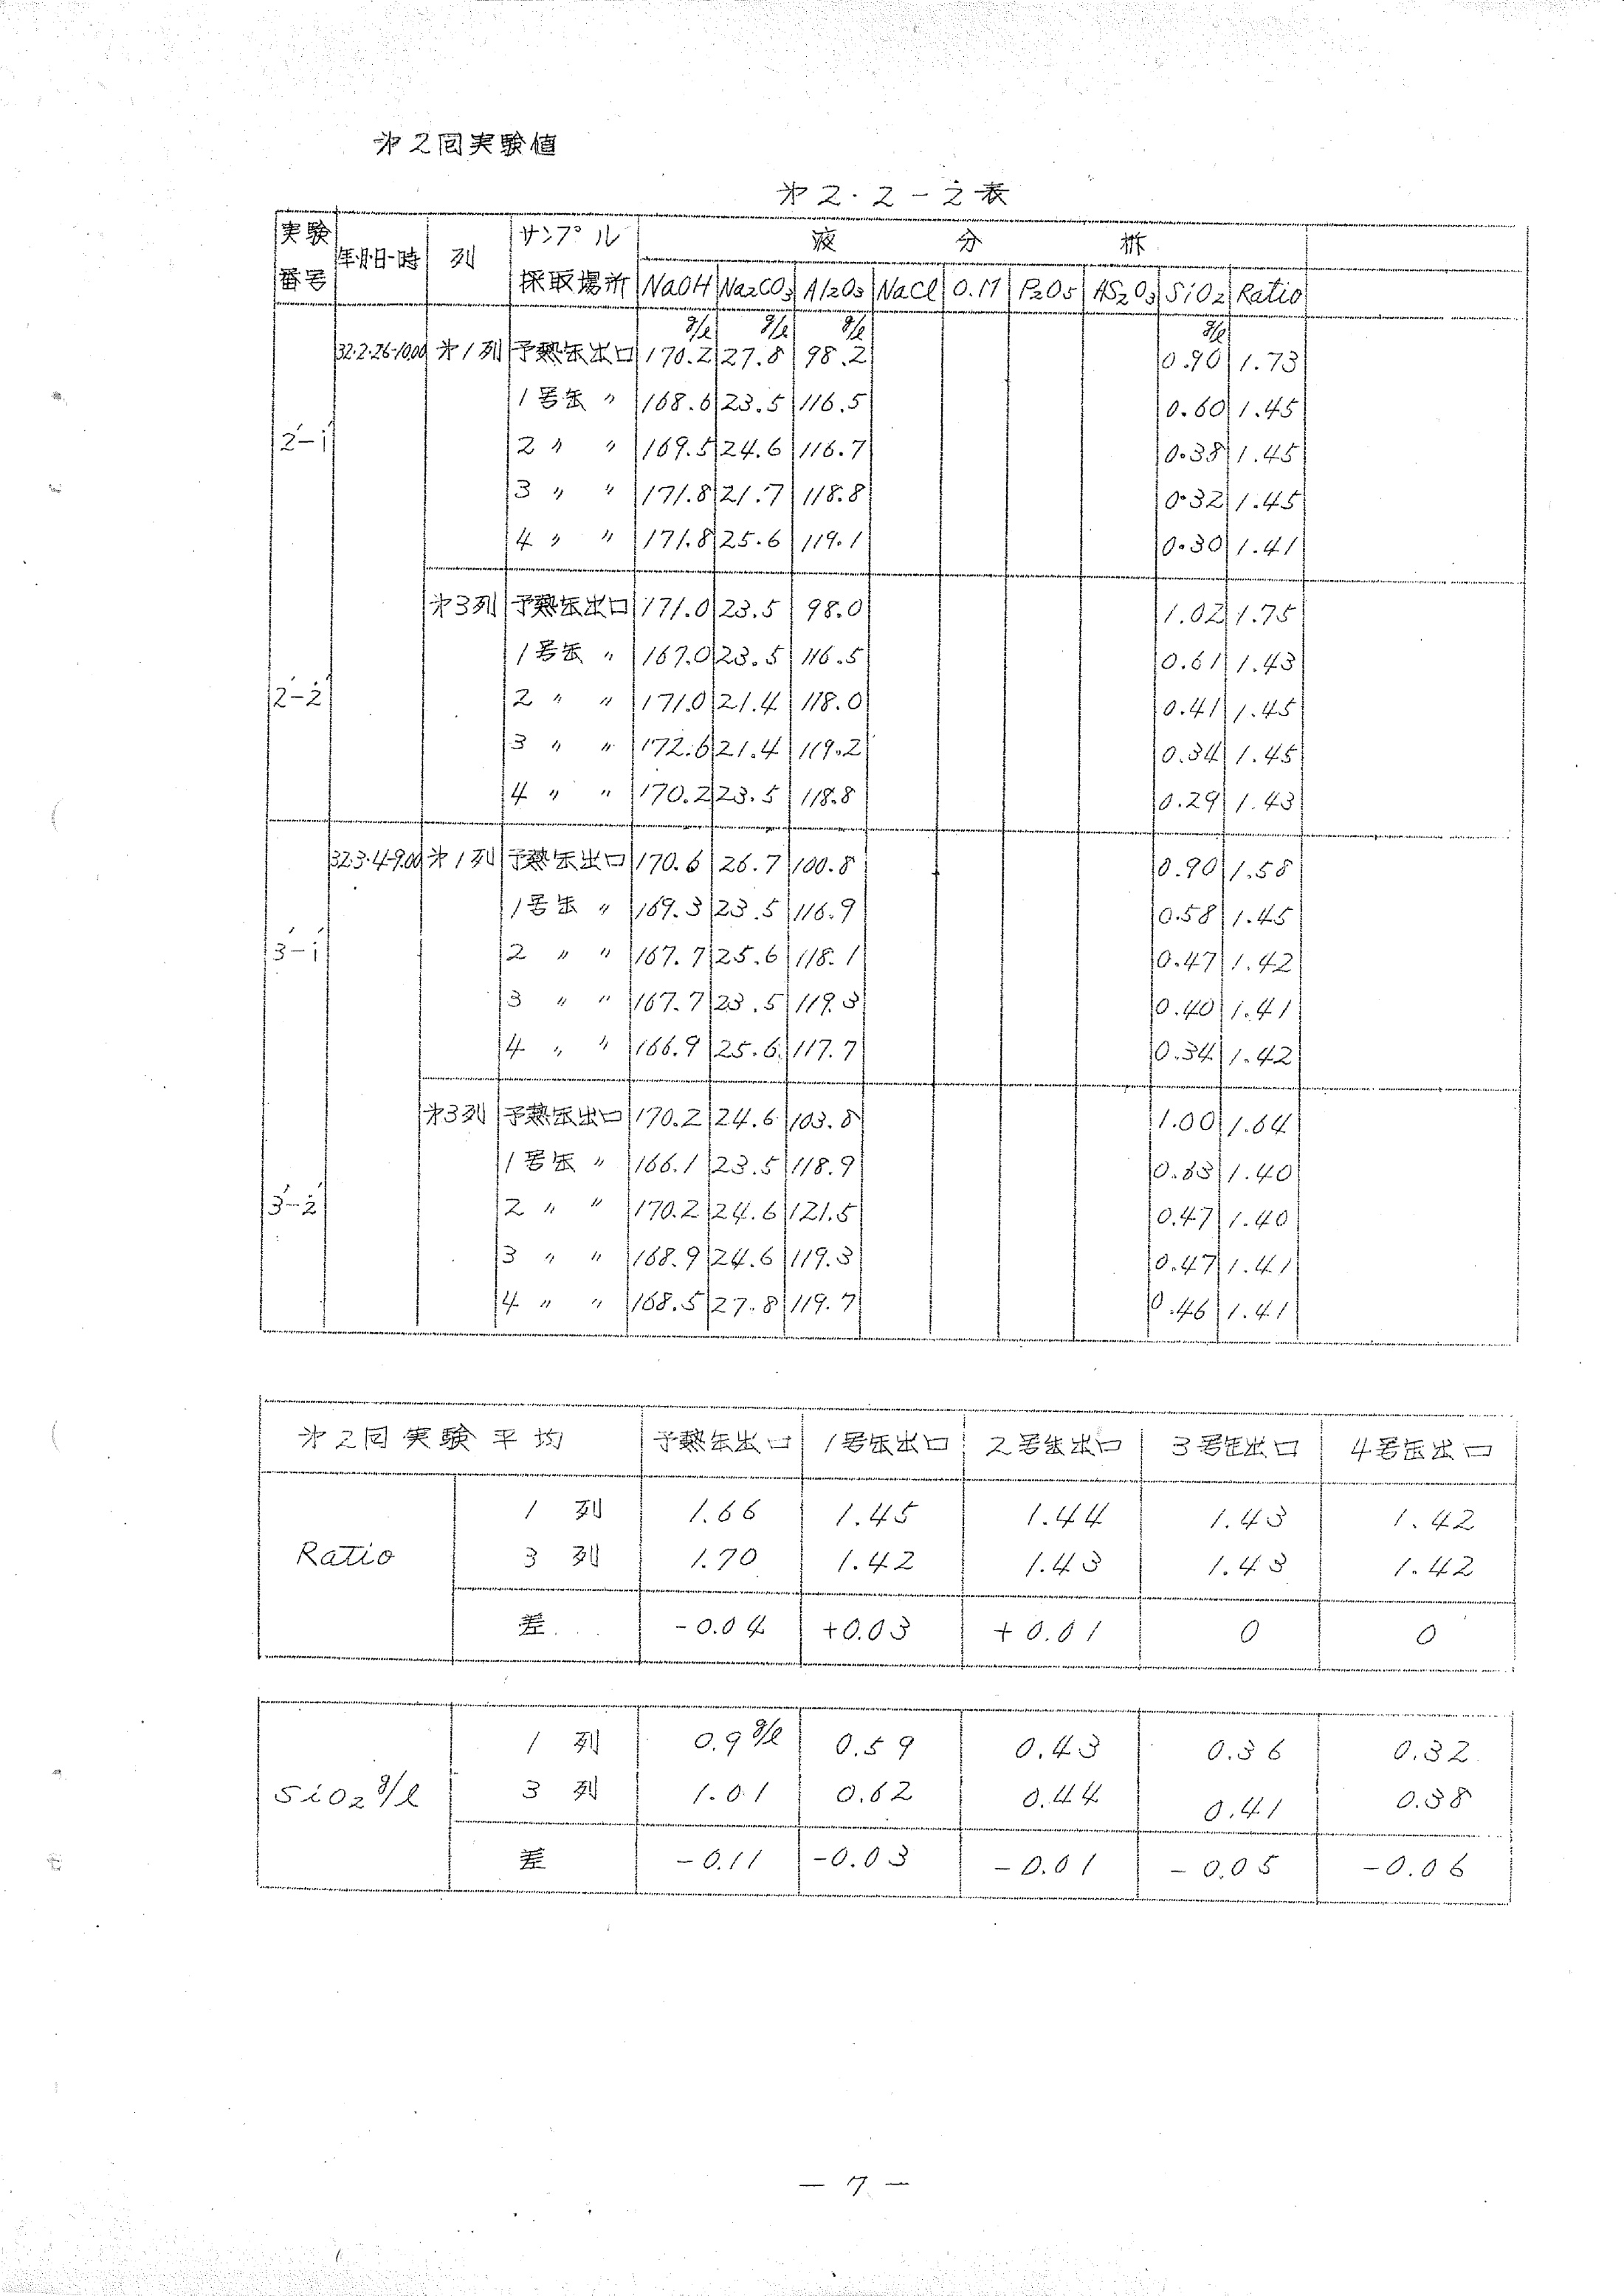 第2回実験値
第2.2-2表
実験 サンプル 液分析
年月日・時 列
番号 採取場所 NaOH Na2CO3 Al2O3 NaCl O.M P2O5 AS2O3 SiO2 Ratio
g/l g/l g/l g/l
32.2.26・10.00 第1列 予熱缶出口 170.2 27.8 98.2 0.90 1.73
1号缶 〃 168.6 23.5 116.5 0.60 1.45
2-1 2 〃 〃 169.5 24.6 116.7 0.38 1.45
3 〃 〃 171.8 21.7 118.8 0.32 1.45
4 〃 〃 171.8 25.6 119.1 0.30 1.41
第3列 予熱缶出口 171.0 23.5 98.0 1.02 1.75
1号缶 〃 167.0 23.5 116.5 0.61 1.43
2-2 2 〃 〃 171.0 21.4 118.0 0.41 1.45
3 〃 〃 172.6 21.4 119.2 0.34 1.45
4 〃 〃 170.2 23.5 118.8 0.29 1.43
32.3.4・9.00 第1列 予熱缶出口 170.6 26.7 100.8 0.90 1.58
1号缶 〃 169.3 23.5 116.9 0.58 1.45
3-1 2 〃 〃 167.7 25.6 118.1 0.47 1.42
3 〃 〃 167.7 23.5 119.3 0.40 1.41
4 〃 〃 166.9 25.6 117.7 0.34 1.42
第3列 予熱缶出口 170.2 24.6 103.8 1.00 1.64
1号缶 〃 166.1 23.5 118.9 1.40
3-2 2 〃 〃 170.2 24.6 121.5 0.47 1.40
3 〃 〃 168.9 24.6 119.3 0.47 1.41
4 〃 〃 168.5 27.8 119.7 0.46 1.41
第2回実験平均 予熱缶出口 1号缶出口 2号缶出口 3号缶出口 4号缶出口
1列 1.66 1.45 1.44 1.43 1.42
Ratio 3列 1.70 1.42 1.43 1.43 1.42
差 -0.04 +0.03 +0.01 0 0
1列 0.9g/l 0.59 0.43 0.36 0.32
SiO2 g/l 3列 1.01 0.62 0.44 0.41 0.38
差 -0.11 -0.03 -0.01 -0.05 -0.06
— 7 —